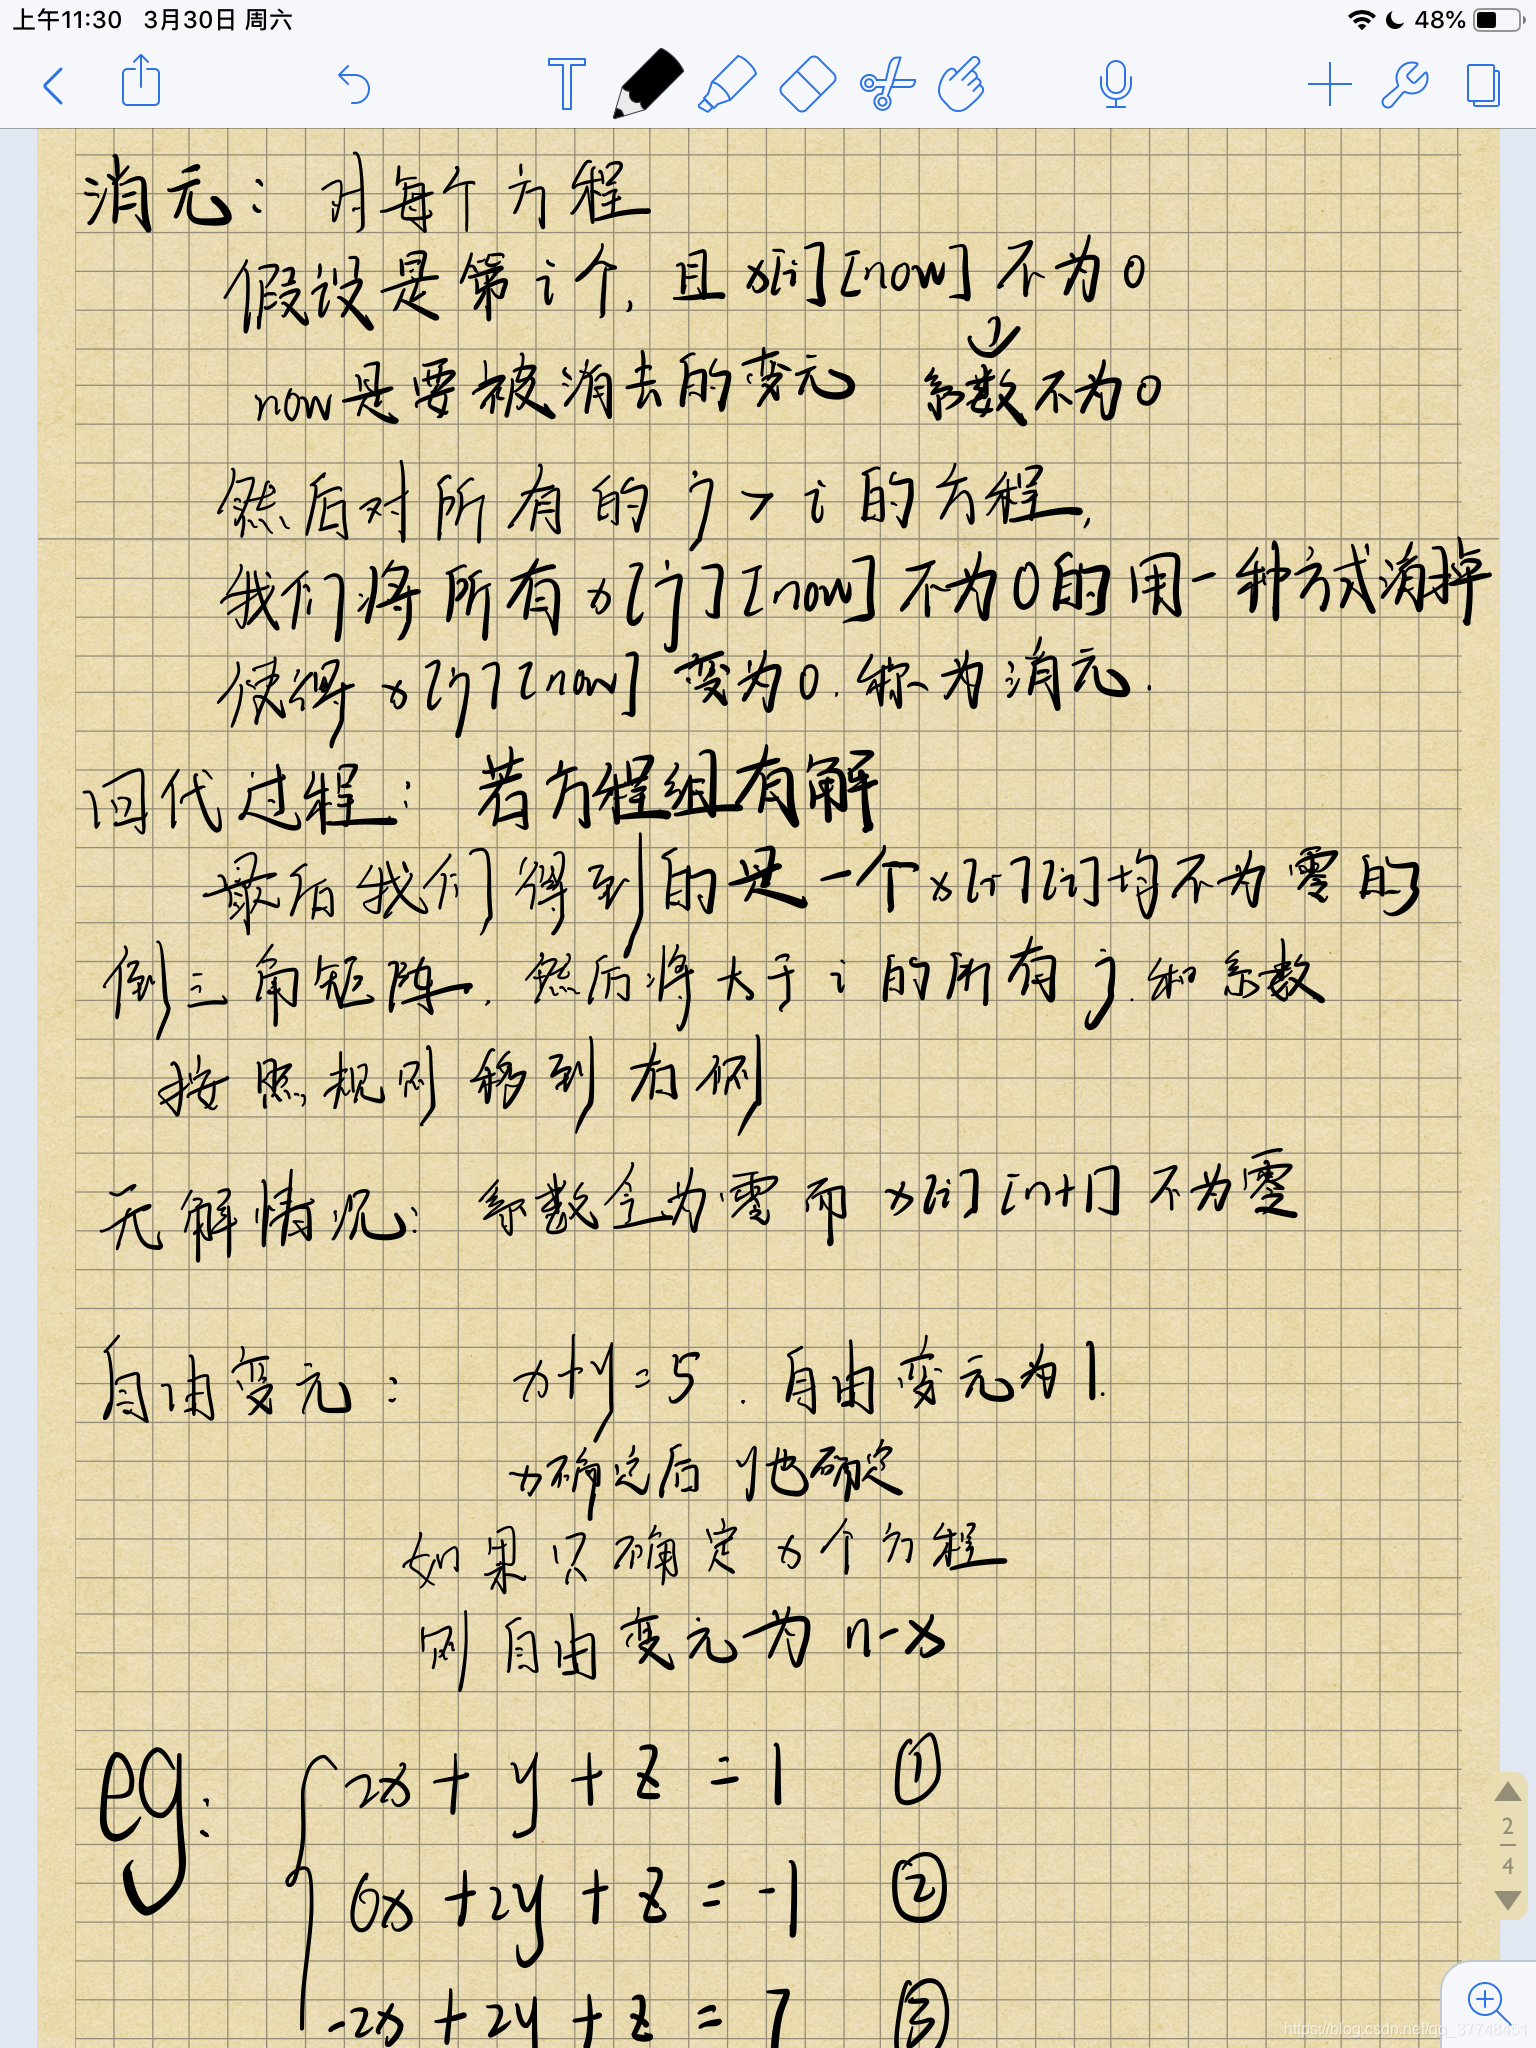 上午11:30 3月30日 周六 48%
消元: 对每个方程
假设是第i个, 且 x[i][now] 不为0
now是要被消去的变元 系数不为0
然后对所有的 j > i 的方程,
我们将所有 x[j][now] 不为0的用一种方式消掉
使得 x[j][now] 变为0. 称为消元.
回代过程: 若方程组有解
最后我们得到的是一个 x[i][i] 均不为零的
倒三角矩阵. 然后将大于 i 的所有 j. 和系数
按照规则移到右侧
无解情况: 系数全为零而 x[i][n+1] 不为零
自由变元: x+y=5. 自由变元为1.
x确定后 y也确定
如果只确定x个方程
则自由变元为 n-x
eg: 2x + y + z = 1 ①
6x + 2y + z = -1 ②
-2x + 2y + z = 7 ③
2
4
https://blog.csdn.net/qq_37748451